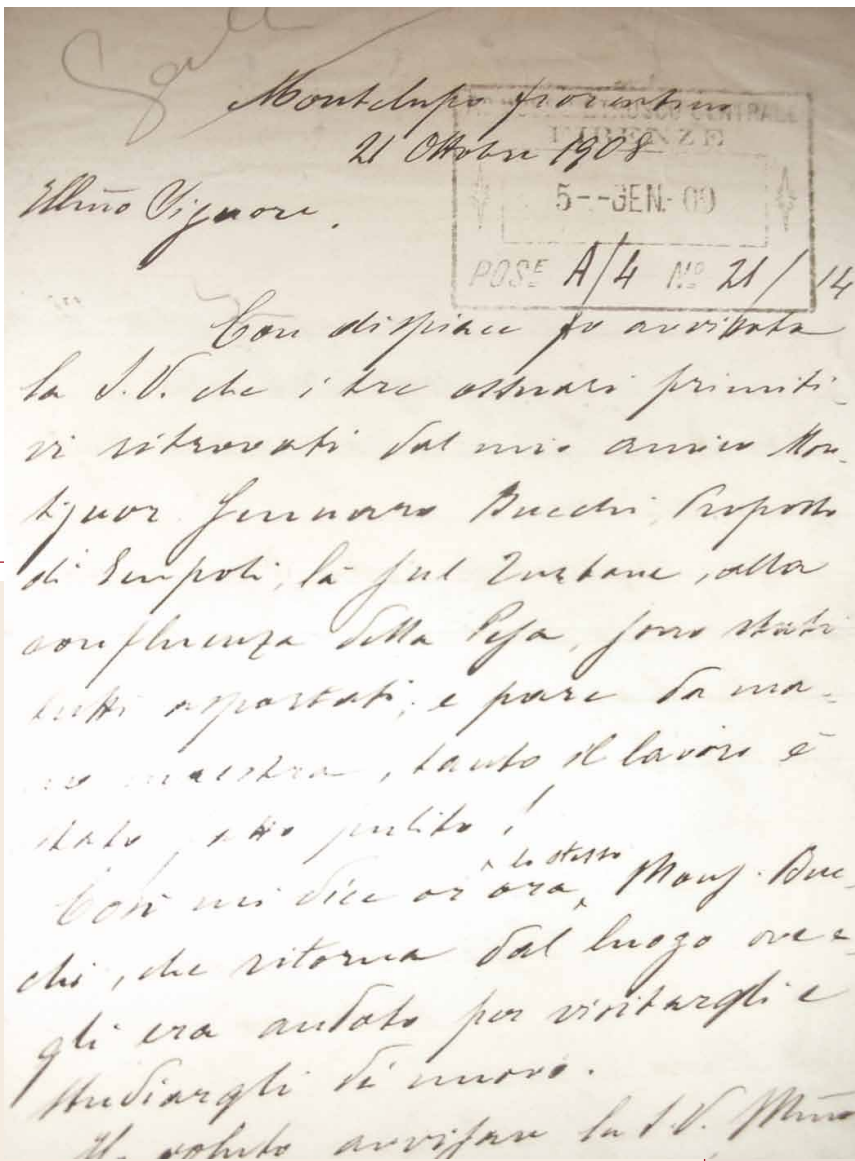 Montelupo fiorentino
21 Ottobre 1908
ETRUSCO CENTRALE
FIRENZE
5--GEN.-09
POSE A/4 No 21/14
Illmo Signore.
Con dispiace fo avvisata
la S.V. che i tre ossuari primiti-
vi ritrovati dal mio amico Mon-
signor Gennaro Bucchi, Proposto
di Empoli, là sul Turbone, alla
confluenza della Pesa, sono stati
tutti asportati; e pare da ma-
no maestra, tanto il lavoro è
stato fatto pulito!
Così mi dice or ora, lo stesso Mons. Buc-
chi, che ritorna dal luogo ove e-
gli era andato per visitargli e
studiargli di nuovo.
Ho voluto avvisare la S.V. Illma